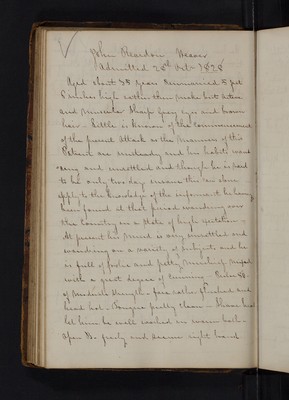 John Reardon Weaver
Admitted 28th Oct 1828
Aged about 40 years Surmounted 5 feet
8 inches high rather thin make but active
and muscular sharp grey eyes and brown
hair. Little is known of the commencement
of the present Attack as the manners of this
Patient are unsteady and his habits wand-
ering and unsettled and though he is said
to be only two days insane this can alone
apply to the knowledge of the informant he having
been found at that period wandering over
the Country in a state of high excitation
At present his mind is very unsettled and
wandering on a variety of subjects and he
is full of and petty mischief mixed
with a great degree of cunning. Pulse 88
of moderate strength face rather flushed and
head hot. Tongue pretty clean. Have his
let him be well washed in warm bath
open his freely and secure right hand